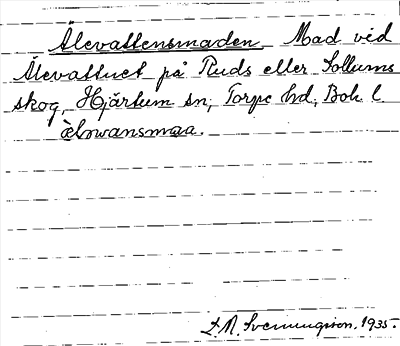 Älevattensmaden Mad vid
Älevattnet på Ruds eller Sollums
skog, Hjärtum sn, Torpe hd, Boh. l.
èlǝwansmaa.
S. N. Svenningson. 1935.